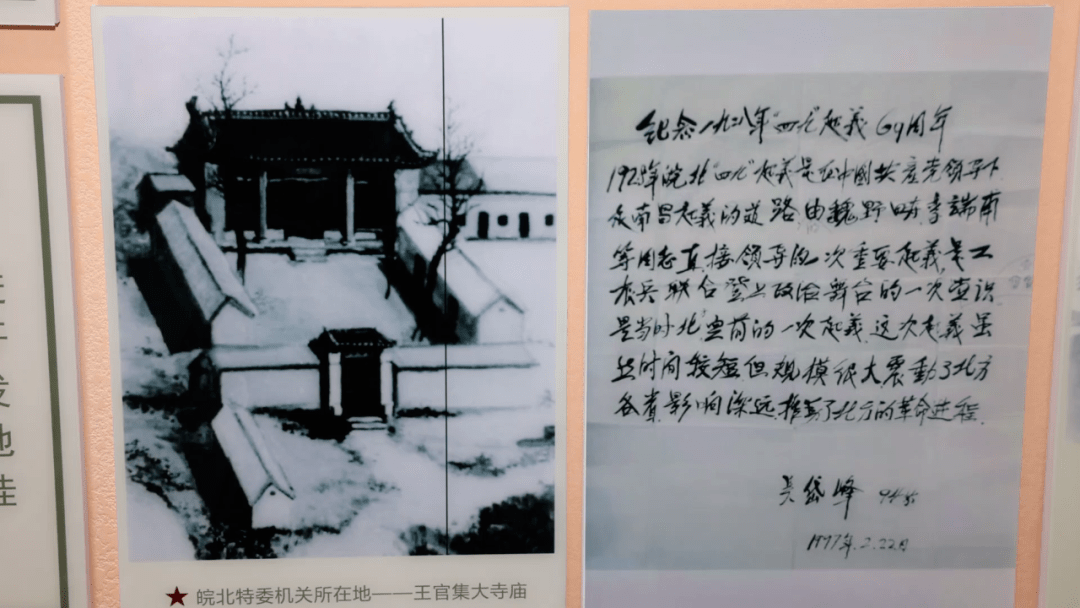 发
地
★ 皖北特委机关所在地——王官集大寺庙
纪念一九二八年“四九”起義69周年
1928年皖北“四九”起義是在中國共產党領导下
南昌起義的道路由魏野畴李端甫
等同志直接領导的一次重要起義是工
农兵联合登上政治舞台的一次尝识
是当时北方空前的一次起義这次起義虽
然时间较短但观模很大震動了北方
各省影响深远推動了北方的革命进程.
吴岱峰 94岁
1997年.2.22日